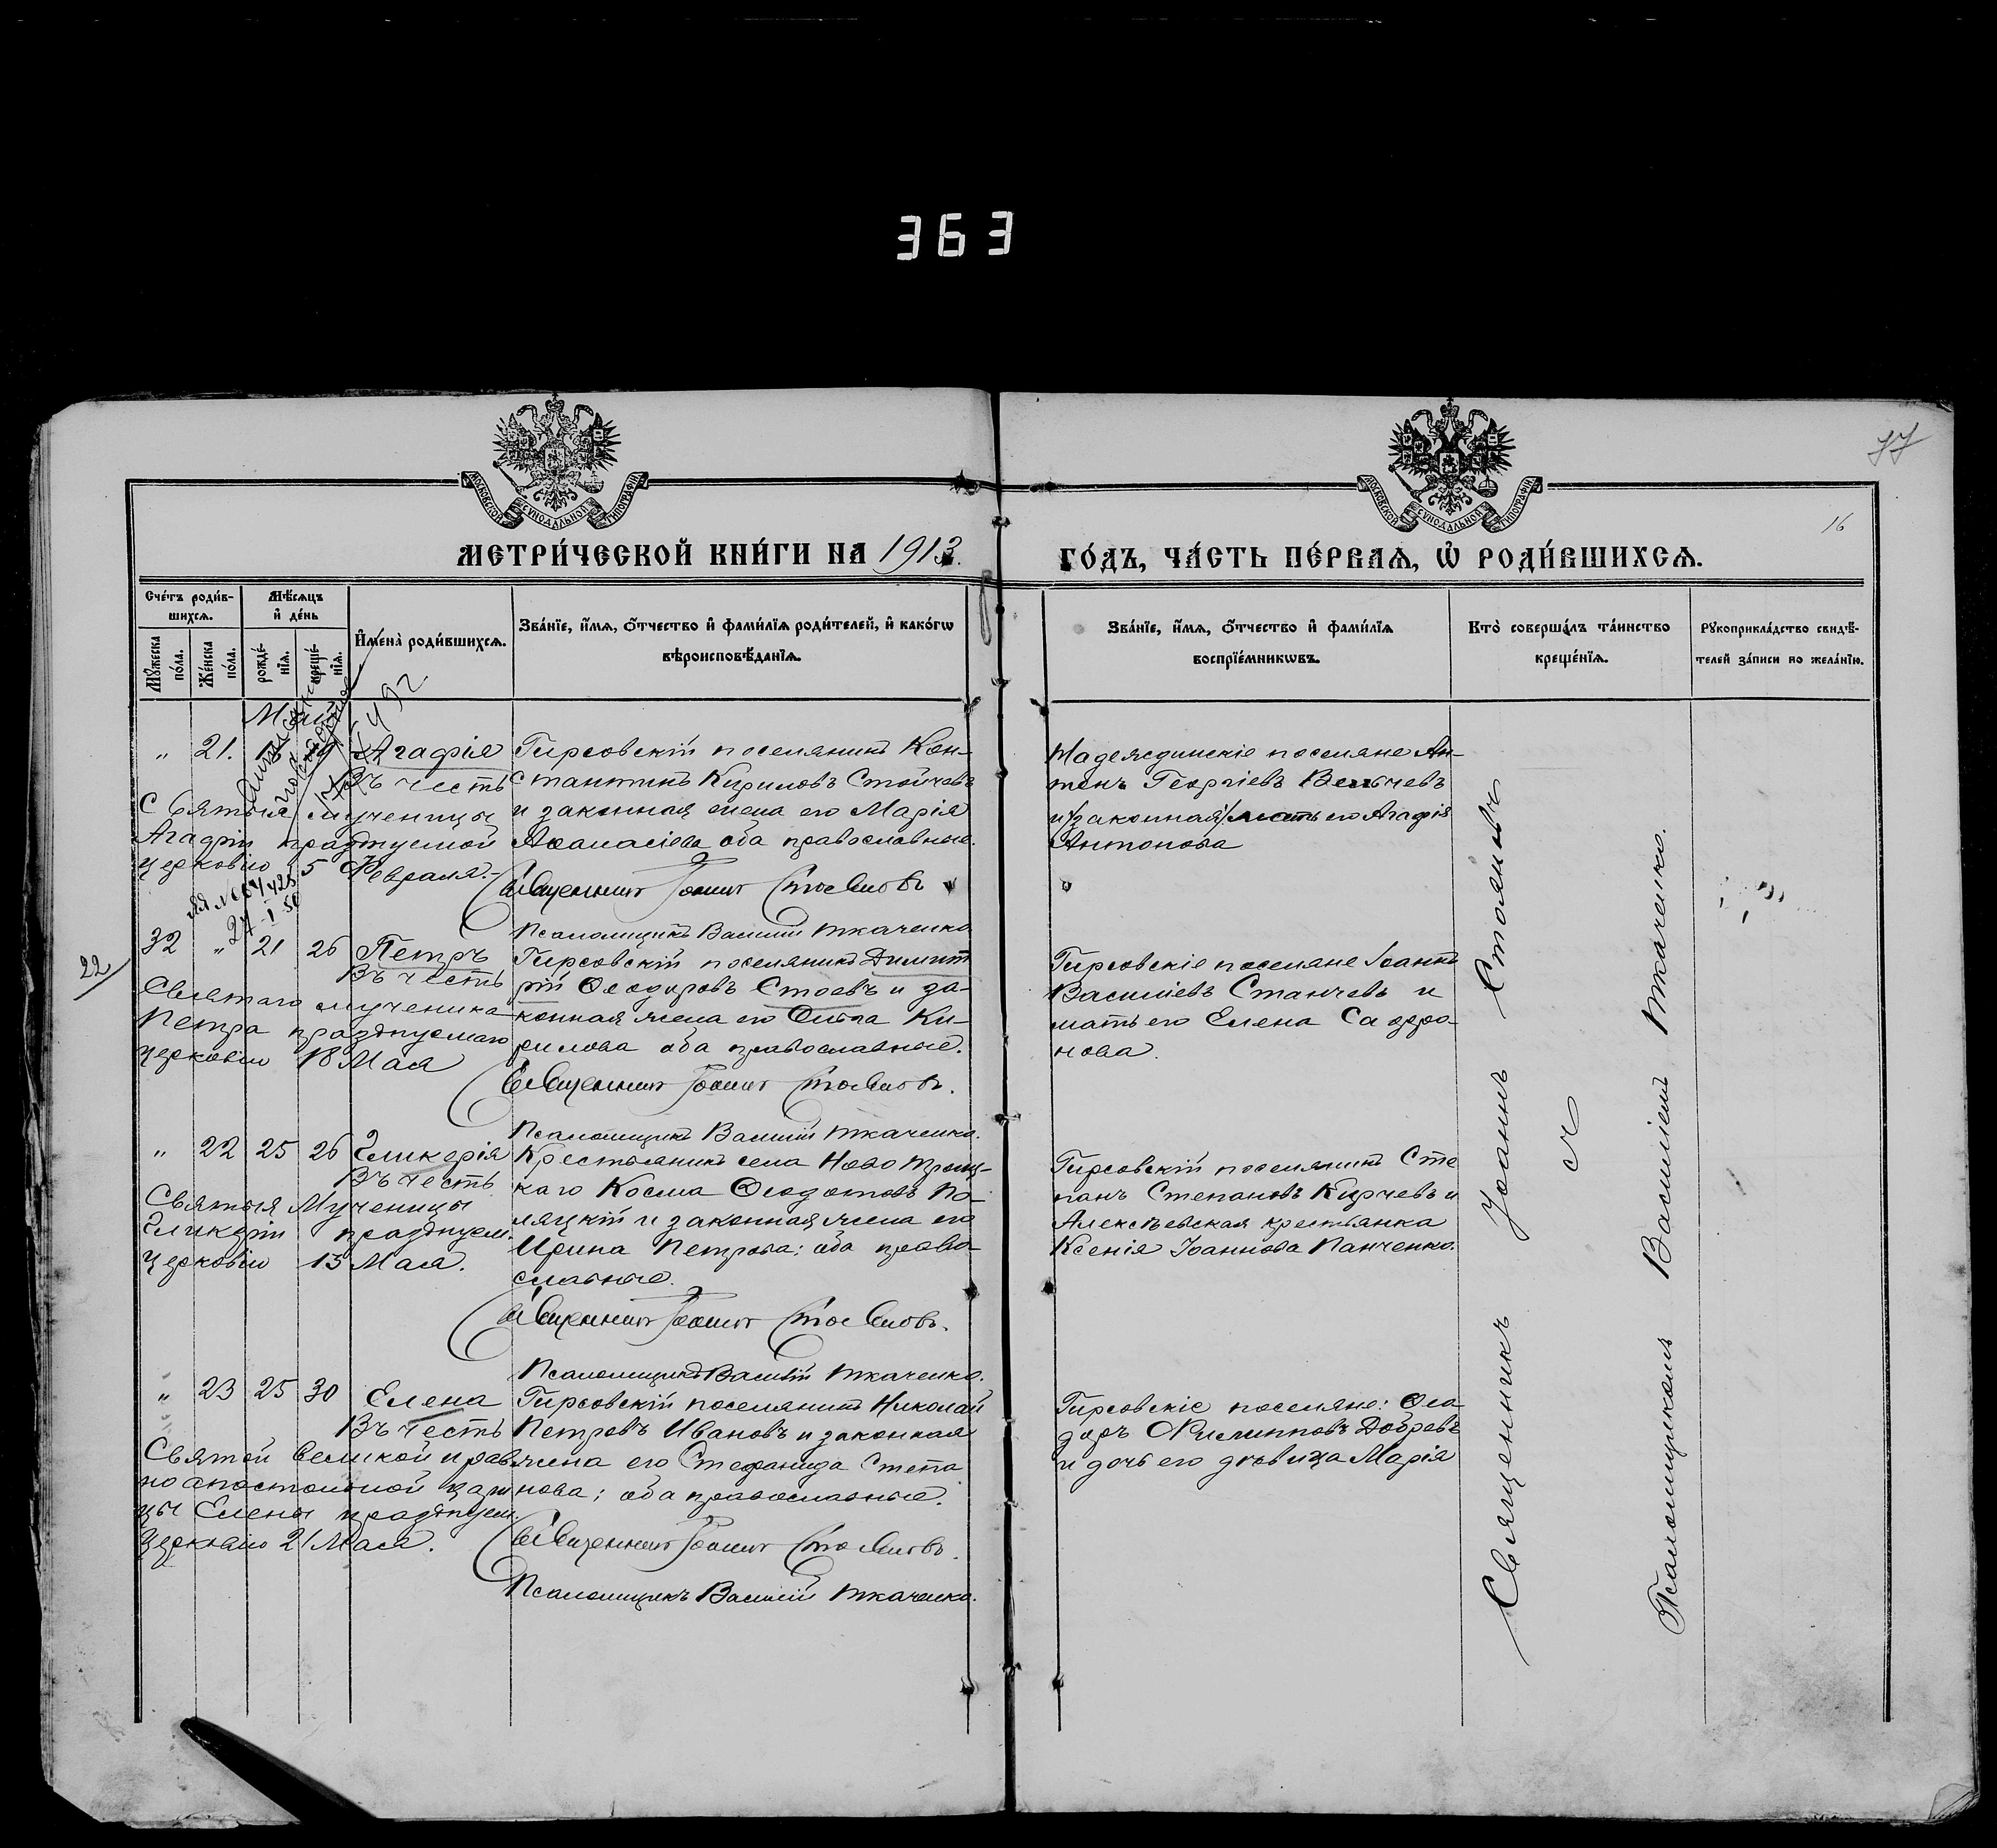 363
77
16
МОСКОВСКОЙ СѴНОДАЛЬНОЙ ТИПОГРАФІИ
МОСКОВСКОЙ СѴНОДАЛЬНОЙ ТИПОГРАФІИ
МЕТРИ́ЧЕСКОЙ КНИ́ГИ НА 1913.
ГО́ДЪ, ЧА́СТЬ ПЕ́РВАѦ, Ѡ҆ РОДИ́ВШИХСѦ.
Сче́тъ роди́в-
шихсѧ.
Мѣ́сѧцъ
и҆ де́нь
Мꙋ́жеска
по́ла.
Же́нска
по́ла.
рожде́-
нїѧ.
креще́-
нїѧ.
И҆мена̀ роди́вшихсѧ.
Зва́нїе, и҆́мѧ, ѻ҆́тчество и҆ фами́лїѧ роди́телей, и҆ како́гѡ
вѣроисповѣ́данїѧ.
Зва́нїе, и҆́мѧ, ѻ҆́тчество и҆ фами́лїѧ
воспрїе́мникѡвъ.
Кто̀ соверша́лъ та́инство
креще́нїѧ.
Рꙋкоприкла́дство свидѣ́-
телей за́писи по жела́нїю.
Май
„ 21. 19 Агафія
Въ честь
Святыя мученицы
Агафіи празднуемой
церковію 5 Февраля.
Гирсовскій поселянинъ Кон-
стантинъ Кириловъ Стойчевъ
и законная жена его Марія
Аѳанасіева оба православные.
Священникъ Іоаннъ Стояновъ
Псаломщикъ Василій Ткаченко
Надеждинскіе поселяне Ан-
тонъ Георгіевъ
и законная мать его Агафія
Антонова
27-I-50
22/
32 „ 21 26 Петръ
Въ честь
Святаго мученика
Петра празднуемаго
церковію 18 Мая
Гирсовскій поселянинъ Димит
рій Ѳеодоровъ Стоевъ и за-
конная жена его Ки-
рилова оба православные.
Священникъ Іоаннъ Стояновъ.
Псаломщикъ Василій Ткаченко.
Гирсовскіе поселяне Іоаннъ
Василіевъ Станчевъ и
мать его Елена Сафро-
нова.
„ 22 25 26 Гликерія
Въ честь
Святыя Мученицы
Гликеріи празднуем.
церковію 13 Мая.
Крестьянинъ села Ново Троиц-
каго Косма Ѳеодотовъ По-
ляцкій и законная жена его
Ирина Петрова: оба право-
славные.
Священникъ Іоаннъ Стояновъ.
Псаломщикъ Василій Ткаченко.
Гирсовскій поселянинъ Сте
панъ Степановъ Кирчевъ и
Алексѣевская крестьянка
Ксенія Іоаннова Панченко.
„ 23 25 30 Елена
Въ честь
Святой Великой и рав
ноапостольной цари
цы Елены празднуем.
церковію 21 Мая.
Гирсовскій поселянинъ Николай
Петровъ Ивановъ и законная
жена его Стефанида Степа
нова; оба православные.
Священникъ Іоаннъ Стояновъ.
Псаломщикъ Василій Ткаченко.
Гирсовскіе поселяне: Ѳео-
доръ Филипповъ Добревъ
и дочь его дѣвица Марія
Священникъ Іоаннъ Стояновъ
съ
Псаломщикомъ Василіемъ Ткаченко.